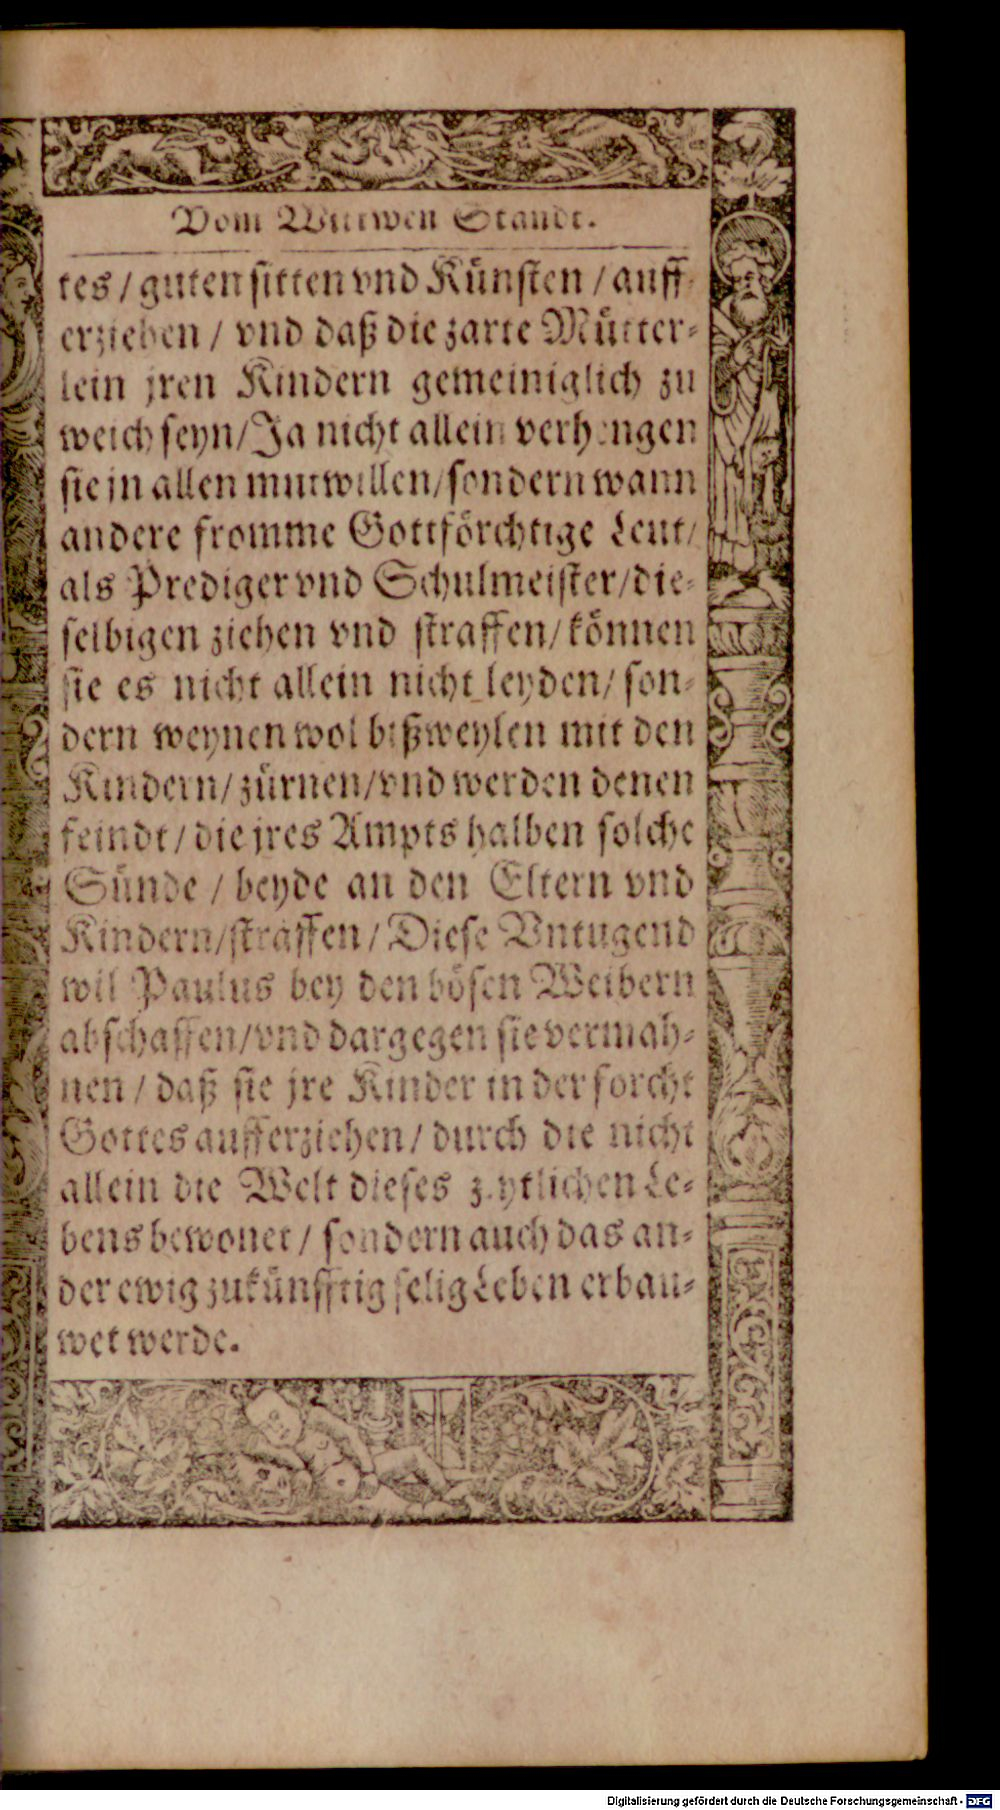 Vom Wittwen Standt.
tes / guten sitten vnd Künsten / auff-
erziehen / vnd daß die zarte Mütter-
lein jren Kindern gemeiniglich zu
weich seyn / Ja nicht allein verhengen
sie jn allen mutwillen / sondern wann
andere fromme Gottförchtige Leut /
als Prediger vnd Schulmeister / die-
selbigen ziehen vnd straffen / können
sie es nicht allein nicht leyden / son-
dern weynen wol bißweylen mit den
Kindern / zürnen / vnd werden denen
feindt / die jres Ampts halben solche
Sünde / beyde an den Eltern vnd
Kindern / straffen / Diese Vntugend
wil Paulus bey den bösen Weibern
abschaffen / vnd dargegen sie vermah-
nen / daß sie jre Kinder in der forcht
Gottes aufferziehen / durch die nicht
allein die Welt dieses zeytlichen Le-
bens bewonet / sondern auch das an-
der ewig zukünfftig selig Leben erbau-
wet werde.
Digitalisierung gefördert durch die Deutsche Forschungsgemeinschaft - DFG